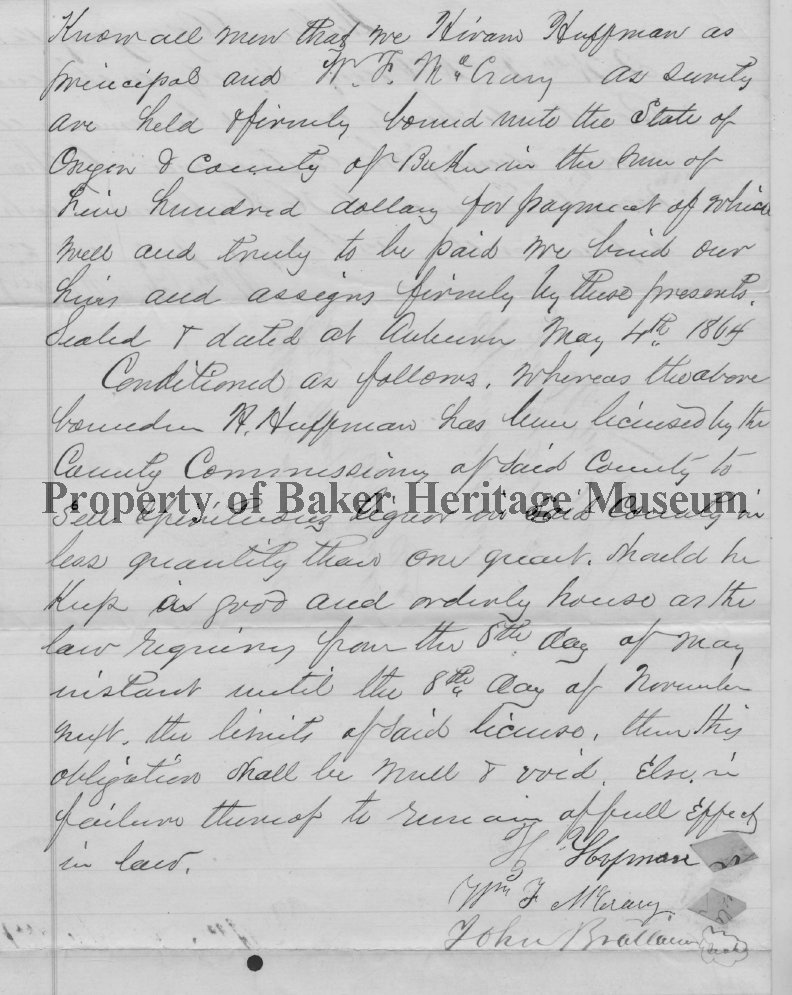 Know all men that we Hiram Huffman as
principal and W. F. McCrary as surety
are held & firmly bound unto the State of
Oregon & County of Baker in the sum of
five hundred dollars for payment of which
well and truly to be paid we bind our
heirs and assigns firmly by these presents.
Sealed & dated at Auburn May 4th 1864
Conditioned as follows. Whereas the above
bounden H. Huffman has been licensed by the
County Commissioners of said County to
Property of Baker Heritage Museum
Sell Spirituous liquor in said County in
less quantity than one quart. Should he
keep a good and orderly house as the
law requires from the 8th day of May
instant until the 8th day of November
next. the limits of said license. then this
obligation shall be null & void. Else in
failure thereof to remain of full Effect
in law.
H Hofman
Wm F McCrary
John